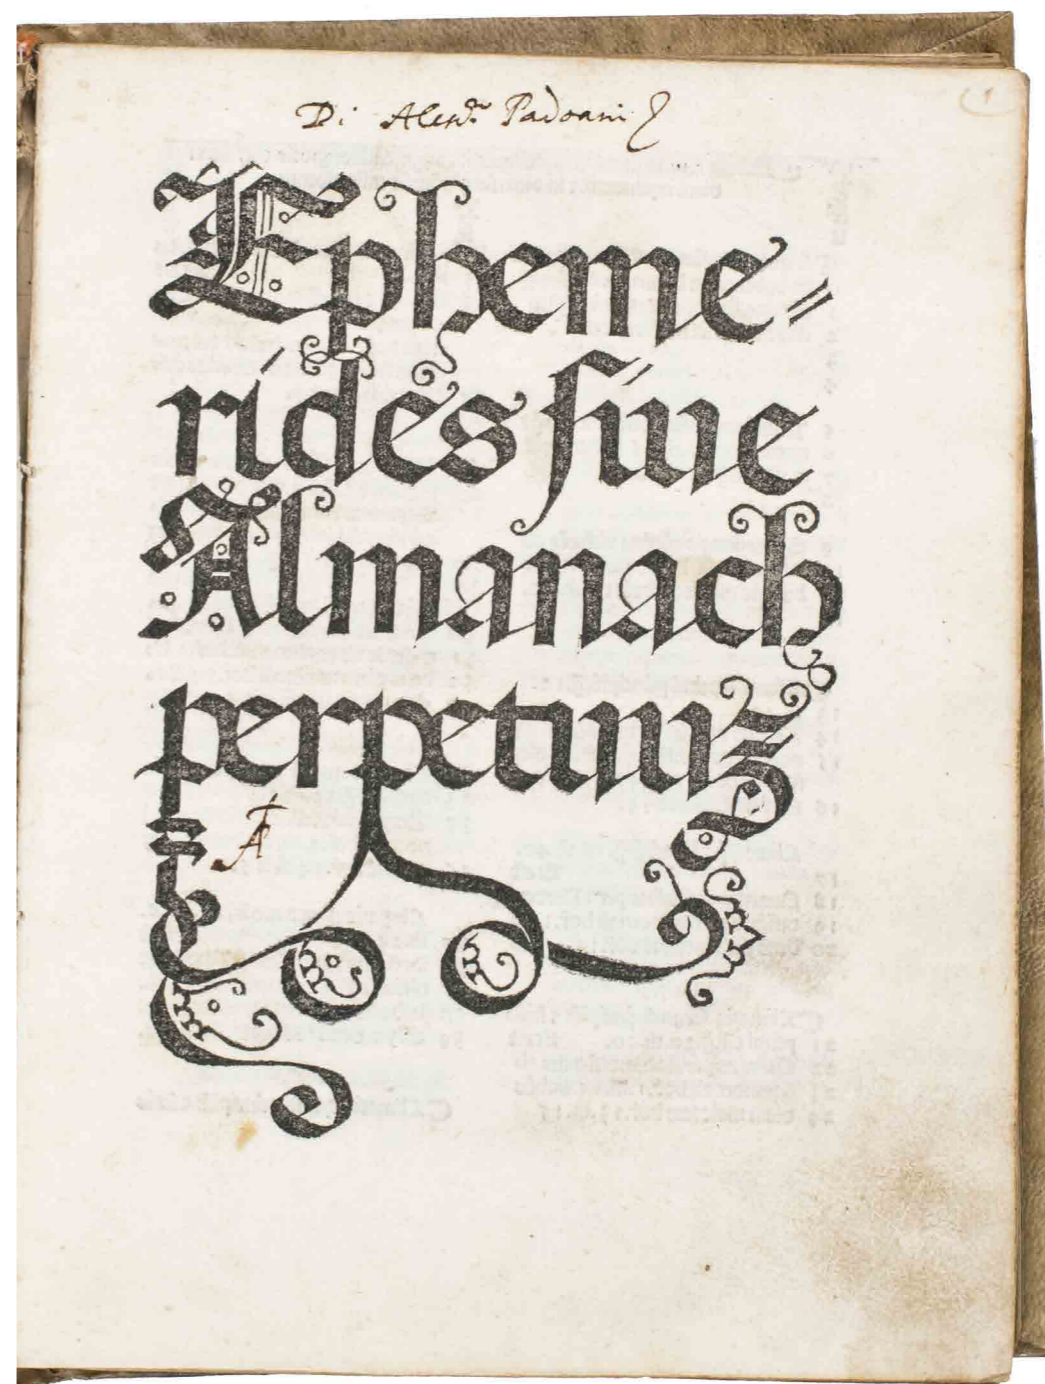 1
Di Alesdr Padoani
Epheme=
rides siue
Almanach
perpetuuz